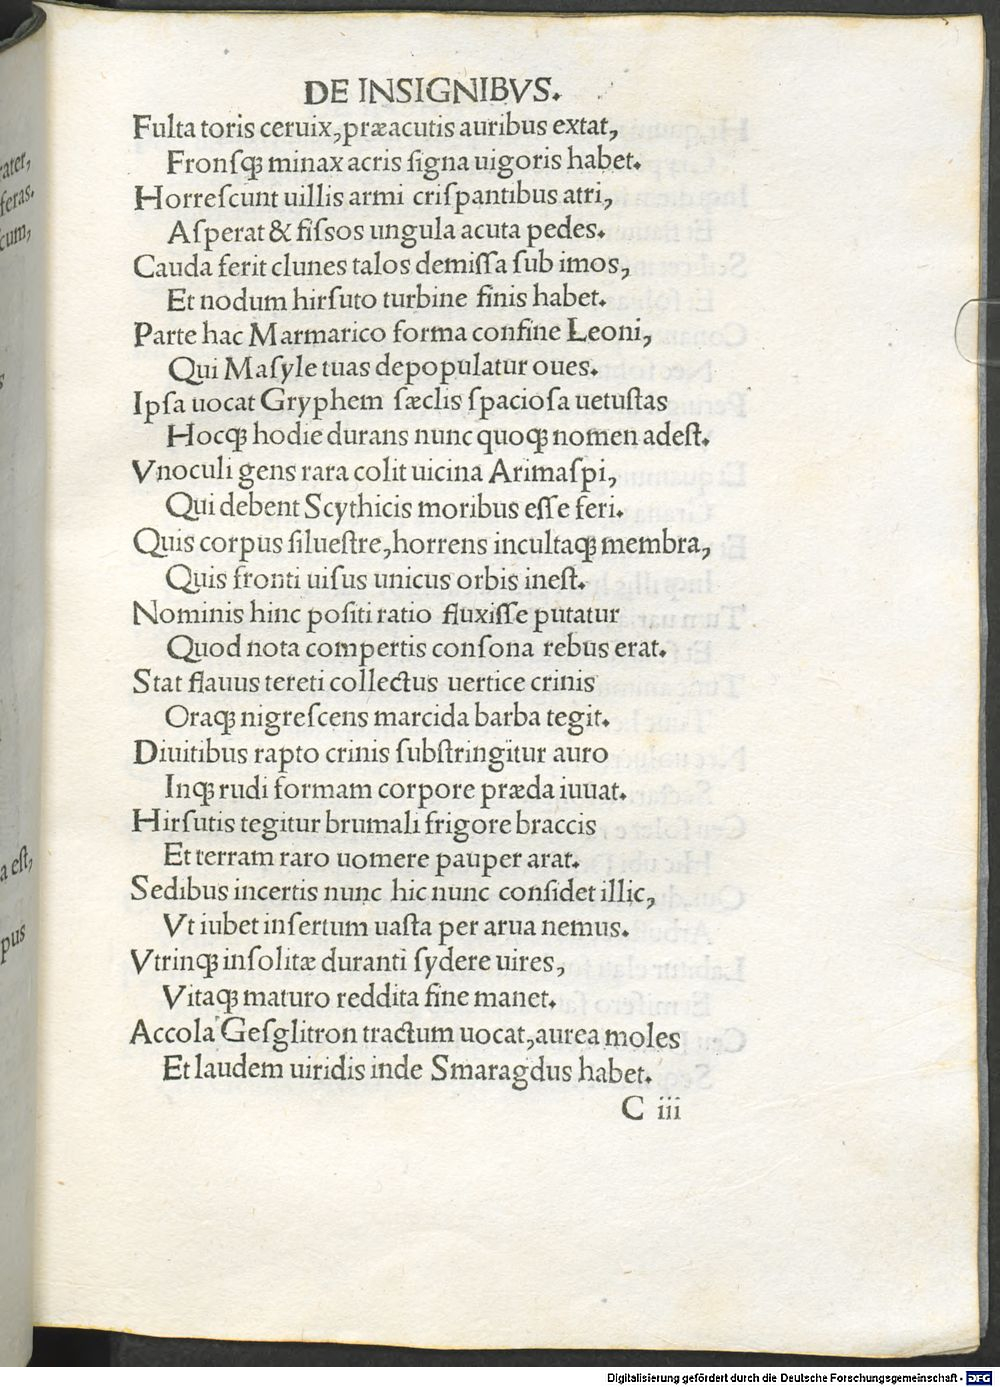 ater,
feras.
cum,
s
a est,
pus
DE INSIGNIBVS.
Fulta toris ceruix, præacutis auribus extat,
Fronſqꝫ minax acris ſigna uigoris habet.
Horreſcunt uillis armi criſpantibus atri,
Aſperat & fiſsos ungula acuta pedes.
Cauda ferit clunes talos demiſſa ſub imos,
Et nodum hirſuto turbine finis habet.
Parte hac Marmarico forma confine Leoni,
Qui Maſyle tuas depopulatur oues.
Ipſa uocat Gryphem ſæclis ſpacioſa uetuſtas
Hocqꝫ hodie durans nunc quoqꝫ nomen adeſt.
Vnoculi gens rara colit uicina Arimaſpi,
Qui debent Scythicis moribus eſſe feri.
Quis corpus ſilueſtre, horrens incultaqꝫ membra,
Quis fronti uiſus unicus orbis ineſt.
Nominis hinc poſiti ratio fluxiſſe putatur
Quod nota compertis conſona rebus erat.
Stat flauus tereti collectus uertice crinis
Oraqꝫ nigreſcens marcida barba tegit.
Diuitibus rapto crinis ſubſtringitur auro
Inqꝫ rudi formam corpore præda iuuat.
Hirſutis tegitur brumali frigore braccis
Et terram raro uomere pauper arat.
Sedibus incertis nunc hic nunc conſidet illic,
Vt iubet inſertum uaſta per arua nemus.
Vtrinqꝫ inſolitæ duranti ſydere uires,
Vitaqꝫ maturo reddita fine manet.
Accola Geſglitron tractum uocat, aurea moles
Et laudem uiridis inde Smaragdus habet.
C iii
Digitalisierung gefördert durch die Deutsche Forschungsgemeinschaft - DFG